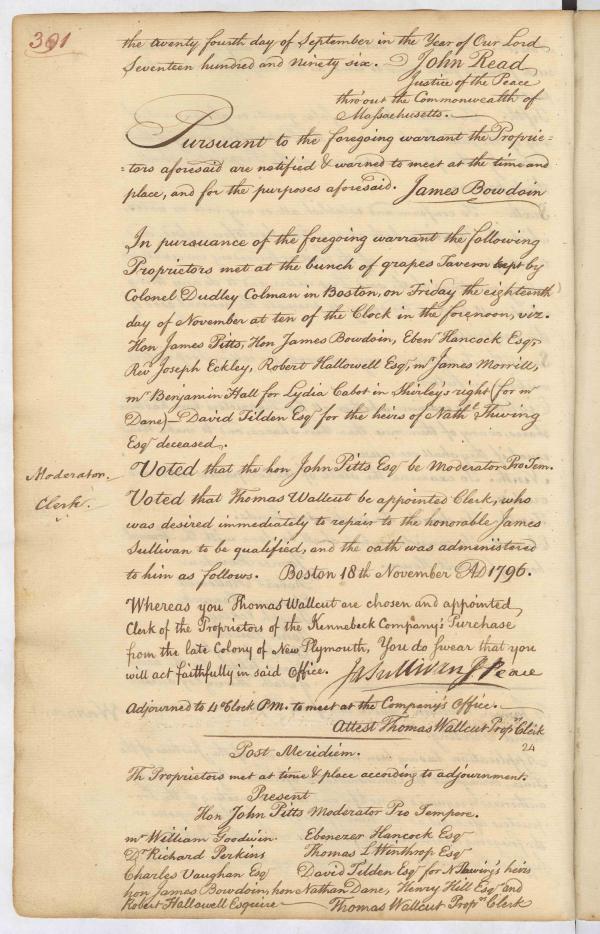 391
the twenty fourth day of September in the Year of Our Lord
Seventeen hundred and Ninety six. John Read
Justice of the Peace
thro'out the Commonwealth of
Massachusetts.
Pursuant to the foregoing warrant the Proprie=
=tors aforesaid are notified & warned to meet at the time and
place, and for the purposes aforesaid. James Bowdoin
In pursuance of the foregoing warrant the following
Proprietors met at the bunch of grapes Tavern kept by
Colonel Dudley Colman in Boston, on Friday the eighteenth
day of November at ten of the Clock in the forenoon, viz.
Hon James Pitts, Hon James Bowdoin, Ebenr Hancock Esqr
Revd Joseph Eckley, Robert Hallowell Esqr, mr James Morrill,
mr Benjamin Hall for Lydia Cabot in Shirley's right (for mr
Dane) — David Tilden Esqr for the heirs of Nathl Thwing
Esqr deceased.
Moderator.
Voted that the hon John Pitts Esqr be Moderator Pro Tem.
Clerk.
Voted that Thomas Wallcut be appointed Clerk, who
was desired immediately to repair to the honorable James
Sullivan to be qualified, and the oath was administered
to him as follows. Boston 18th November AD 1796.
Whereas you Thomas Wallcut are chosen and appointed
Clerk of the Proprietors of the Kennebeck Company's Purchase
from the late Colony of New Plymouth, You do swear that you
will act faithfully in said Office. Ja Sullivan J Peace
Adjourned to 4 o'Clock P.M. to meet at the Company's Office.
Attest Thomas Wallcut Proprs Clerk
24
Post Meridiem.
Th Proprietors met at time & place according to adjournment.
Present
Hon John Pitts Moderator Pro Tempore.
mr William Goodwin. Ebenezer Hancock Esqr
Dr Richard Perkins Thomas L Winthrop Esqr
Charles Vaughan Esq David Tilden Esqr for N Thwing's heirs
hon James Bowdoin, hon Nathan Dane, Henry Hill Esqr and
Robert Hallowell Esquire — Thomas Wallcut Proprs Clerk